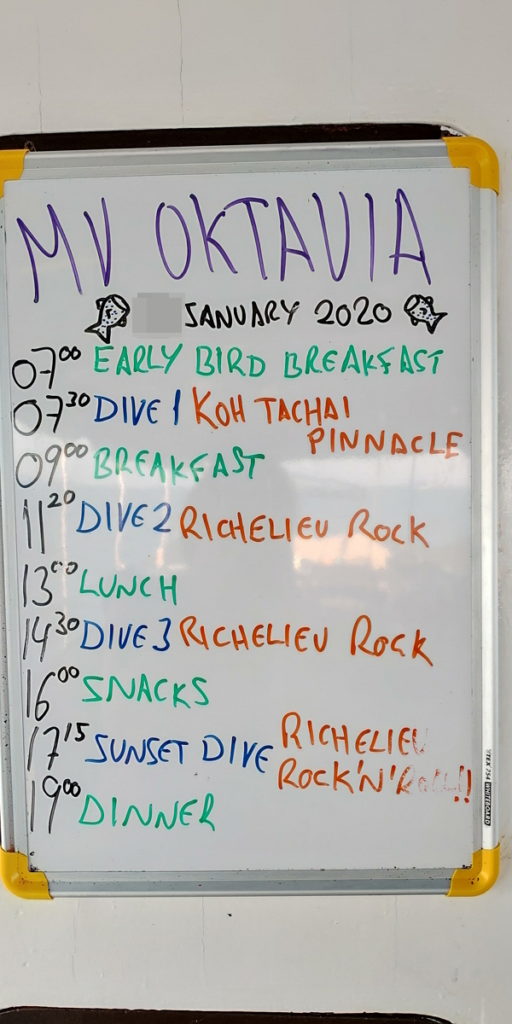 MV OKTAVIA
JANUARY 2020
07⁰⁰ EARLY BIRD BREAKFAST
07³⁰ DIVE 1 KOH TACHAI
PINNACLE
09⁰⁰ BREAKFAST
11²⁰ DIVE 2 RICHELIEU ROCK
13⁰⁰ LUNCH
14³⁰ DIVE 3 RICHELIEU ROCK
16⁰⁰ SNACKS
17¹⁵ SUNSET DIVE RICHELIEU
ROCK'N'ROLL!!
19⁰⁰ DINNER